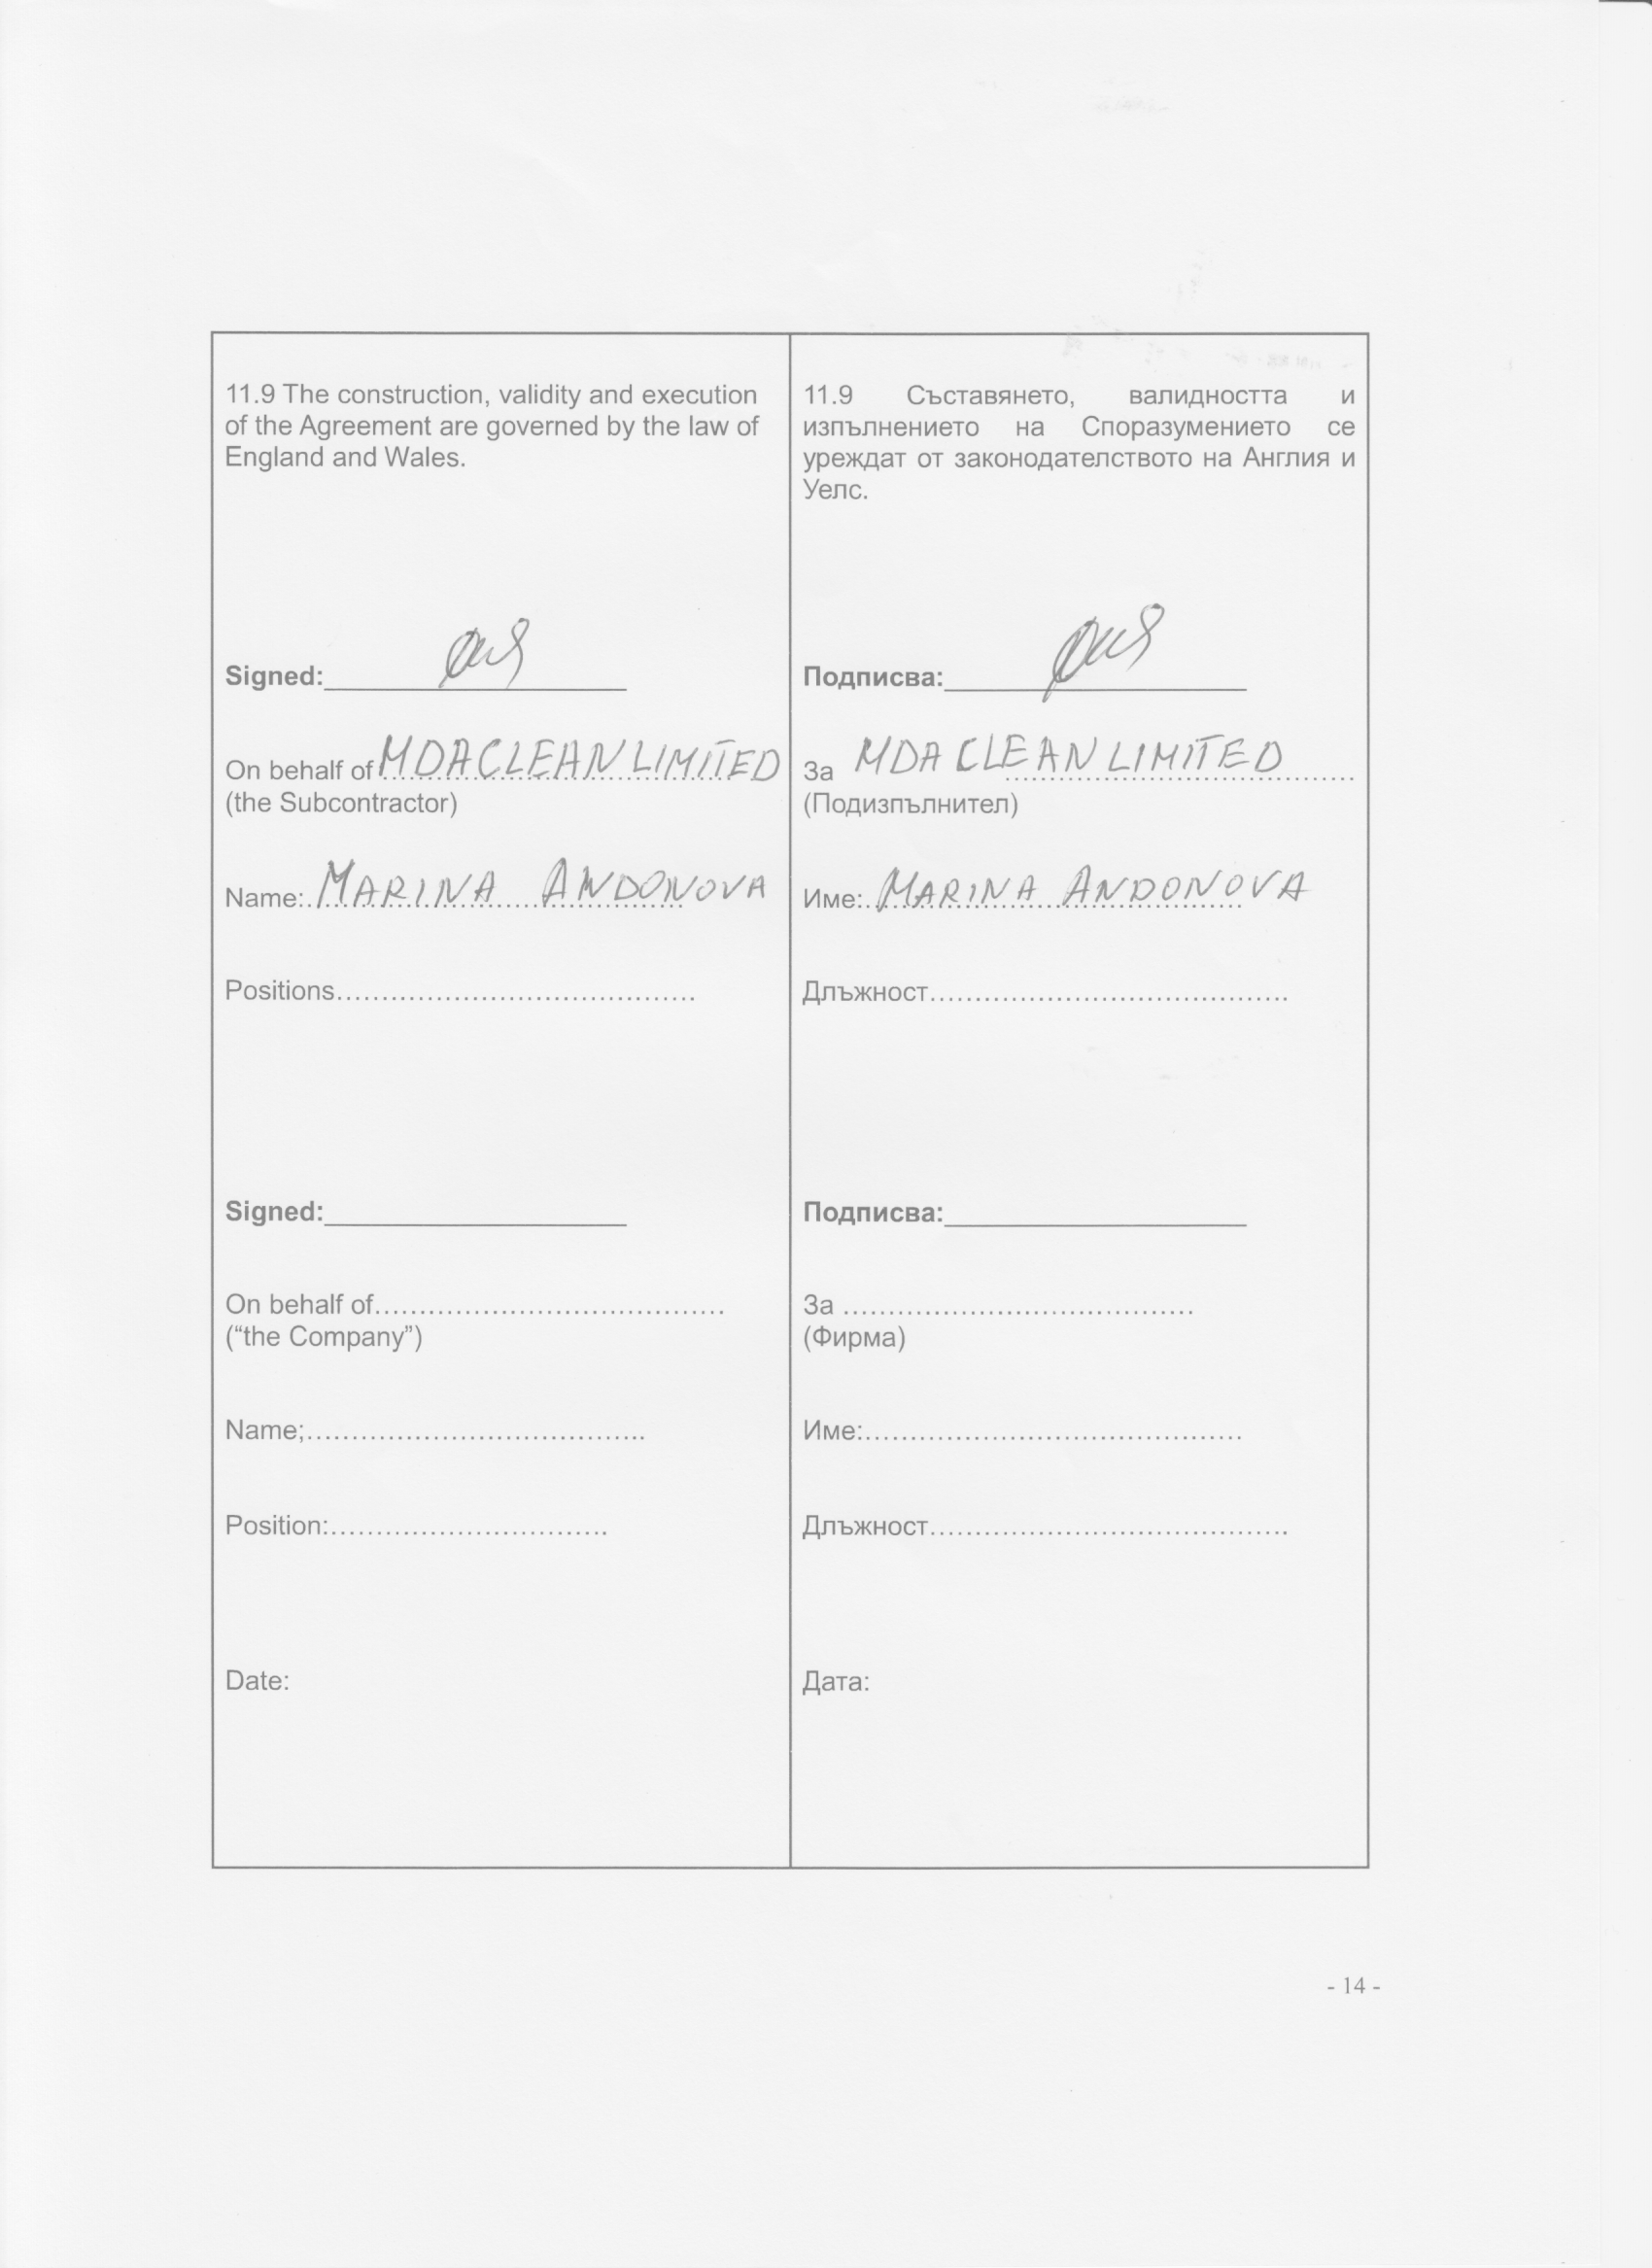 11.9 The construction, validity and execution
of the Agreement are governed by the law of
England and Wales.
Signed:
On behalf of MDACLEAN LIMITED
(the Subcontractor)
Name: MARINA ANDONOVA
Positions
Signed:
On behalf of
(“the Company”)
Name;
Position:
Date:
11.9 Съставянето, валидността и
изпълнението на Споразумението се
уреждат от законодателството на Англия и
Уелс.
Подписва:
За MDA CLEAN LIMITED
(Подизпълнител)
Име: MARINA ANDONOVA
Длъжност
Подписва:
За
(Фирма)
Име:
Длъжност
Дата:
- 14 -